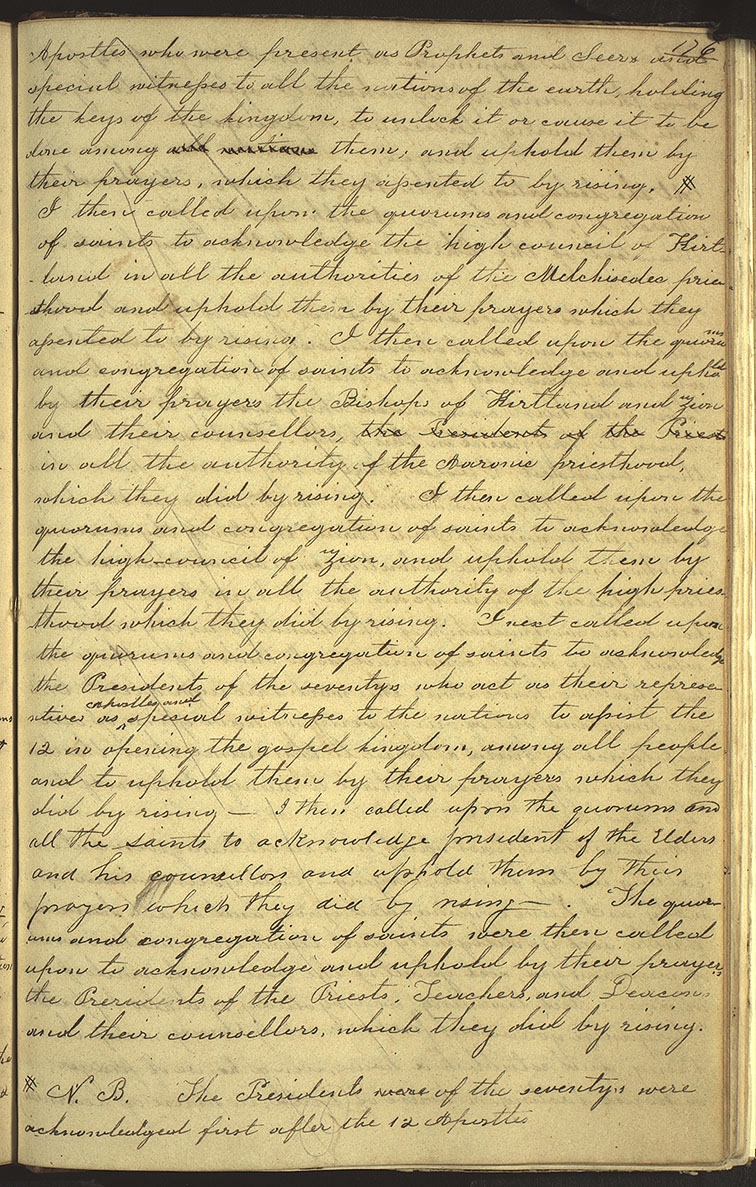 176
Apostles who were present as Prophets and Seers and
special witnesses to all the nations of the earth, holding
the keys of the kingdom, to unlock it or cause it to be
done among all nations them; and uphold them by
their prayers, which they assented to by rising. #
I then called upon the quorums and congregation
of saints to acknowledge the high council of Kirt-
-land in all the authorities of the Melchisedec prie-
sthood and uphold them by their prayers which they
assented to by rising. I then called upon the quorums
and congregation of saints to acknowledge and uphold
by their prayers the Bishops of Kirtland and Zion
and their counsellors, the Presidents of the Priests
in all the authority of the Aaronic priesthood,
which they did by rising. I then called upon the
quorums and congregation of saints to acknowledge
the high-council of Zion, and uphold them by
their prayers in all the authority of the high pries-
thood which they did by rising. I next called upon
the quorums and congregation of saints to acknowledge
the Presidents of the seventys who act as their represe-
ntives as apostles and special witnesses to the nations to assist the
12 in opening the gospel kingdom, among all people
and to uphold them by their prayers which they
did by rising — I then called upon the quorums and
all the saints to acknowledge president of the Elders
and his counsellors and uphold them by their
prayers which they did by rising —. The quor-
ums and congregation of saints were then called
upon to acknowledge and uphold by their prayers
the Presidents of the Priests, Teachers, and Deacons
and their counsellors, which they did by rising.
# N. B. The Presidents were of the seventys were
acknowledged first after the 12 Apostles